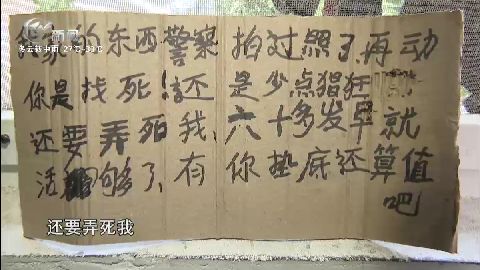 新闻
多云转中雨 27℃-33℃
我家的东西警察拍过照了,再动
你是找死!还是少点猖狂
还要弄死我,六十多岁早就
活够了,有你垫底还算值
吧
还要弄死我